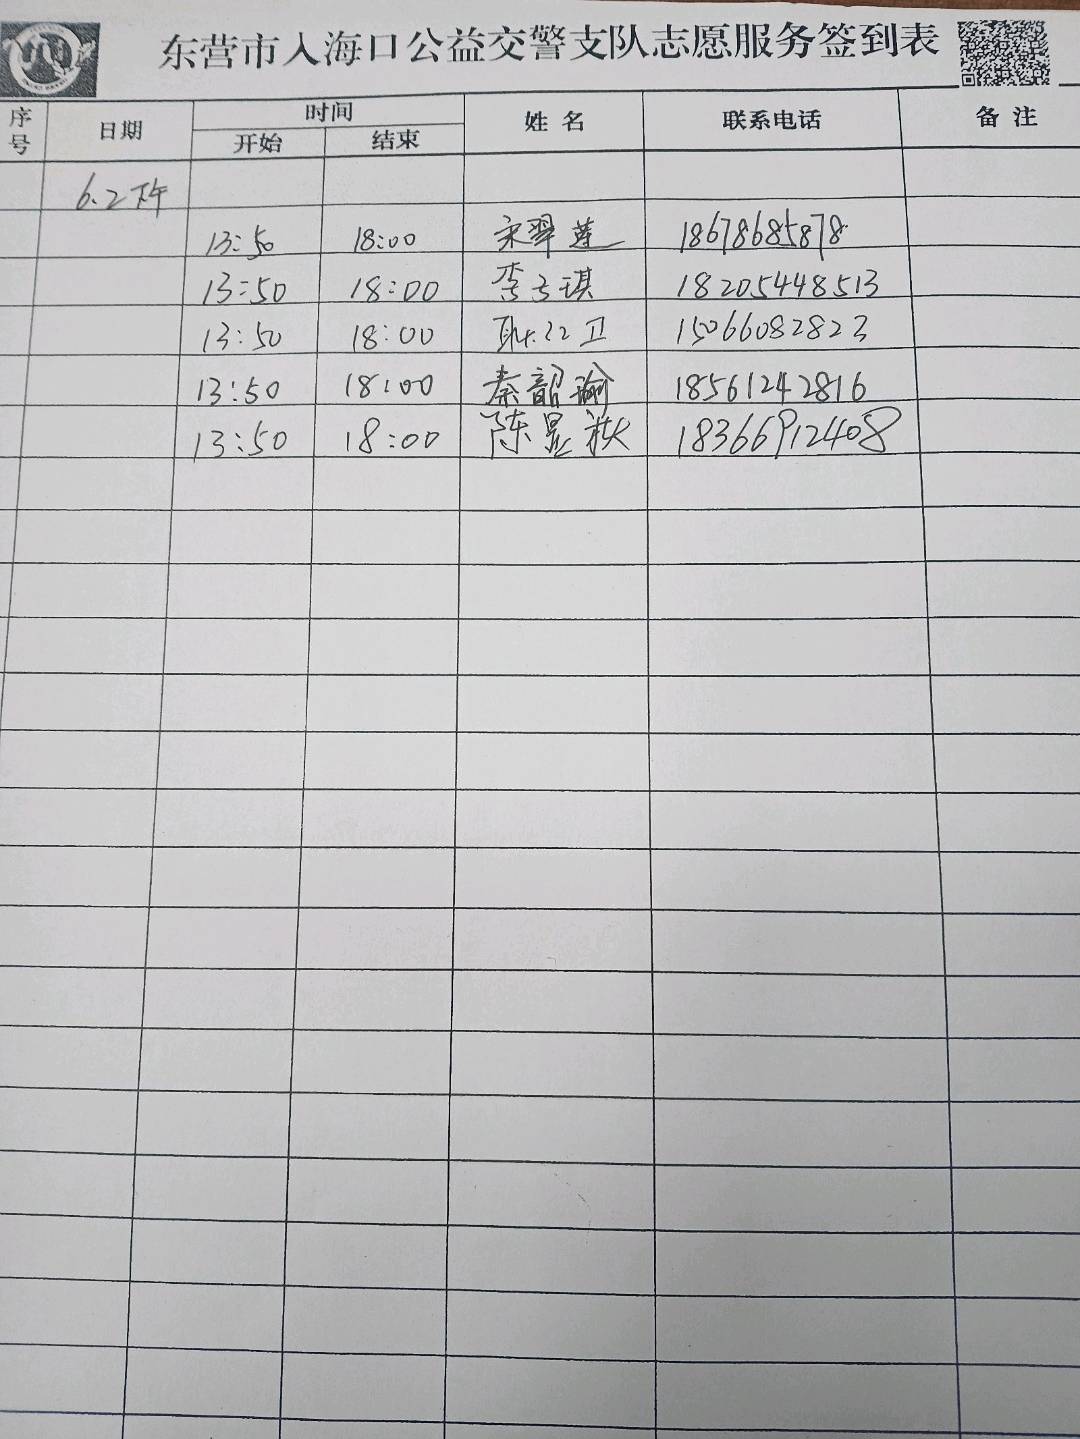 东营市入海口公益交警支队志愿服务签到表
序号 日期 时间 姓名 联系电话 备注
开始 结束
6.2下午
13:50 18:00 宋翠莲 18678685878
13:50 18:00 李子琪 18205448513
13:50 18:00 卫 15066082823
13:50 18:00 秦韶瑜 18561242816
13:50 18:00 陈显 18366912408